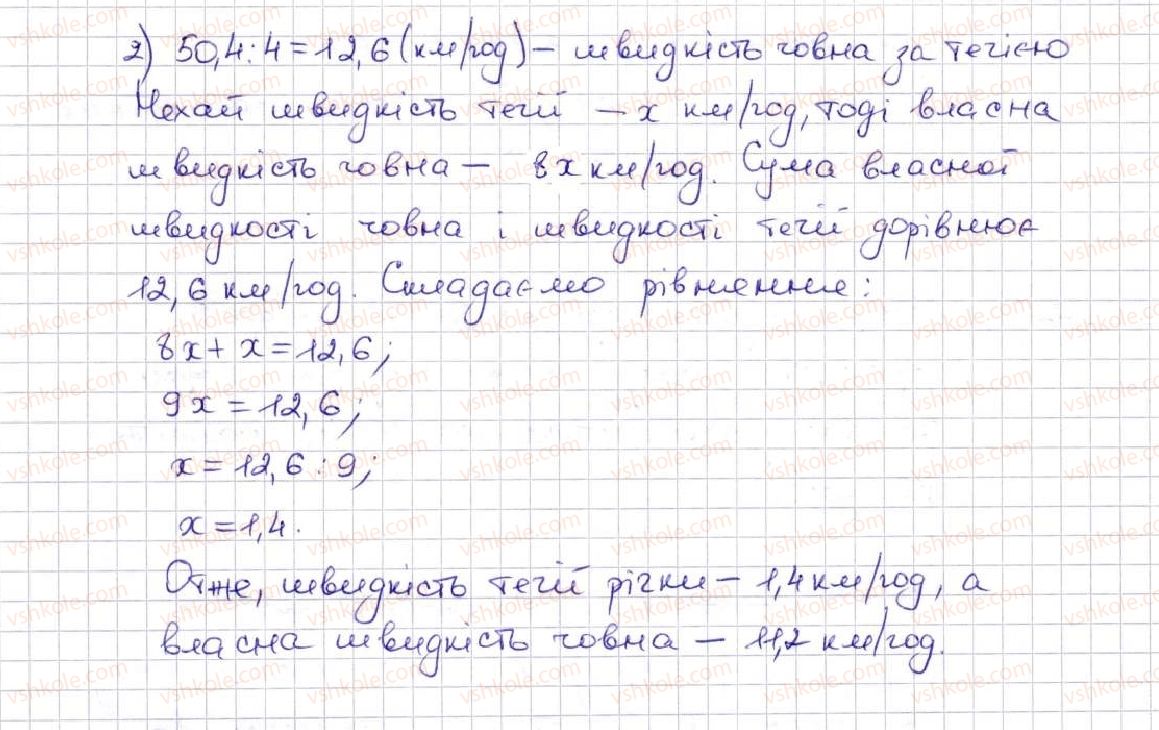 2) 50,4:4=12,6 (км/год) – швидкість човна за течією
Нехай швидкість течії – x км/год, тоді власна
швидкість човна – 8x км/год. Сума власної
швидкості човна і швидкості течії дорівнює
12,6 км/год. Складаємо рівняння:
8x + x = 12,6;
9x = 12,6;
x = 12,6 : 9;
x = 1,4.
Отже, швидкість течії річки – 1,4 км/год, а
власна швидкість човна – 11,2 км/год.